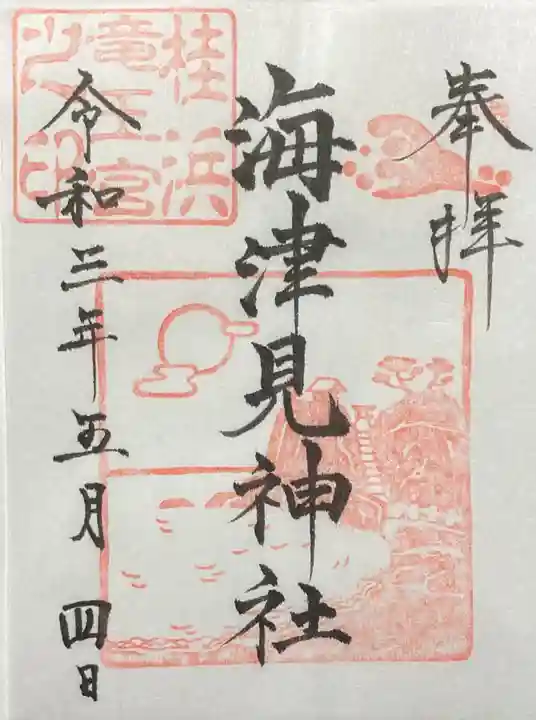 奉拝
海津見神社
令和三年五月四日
桂浜
竜王宮
之印